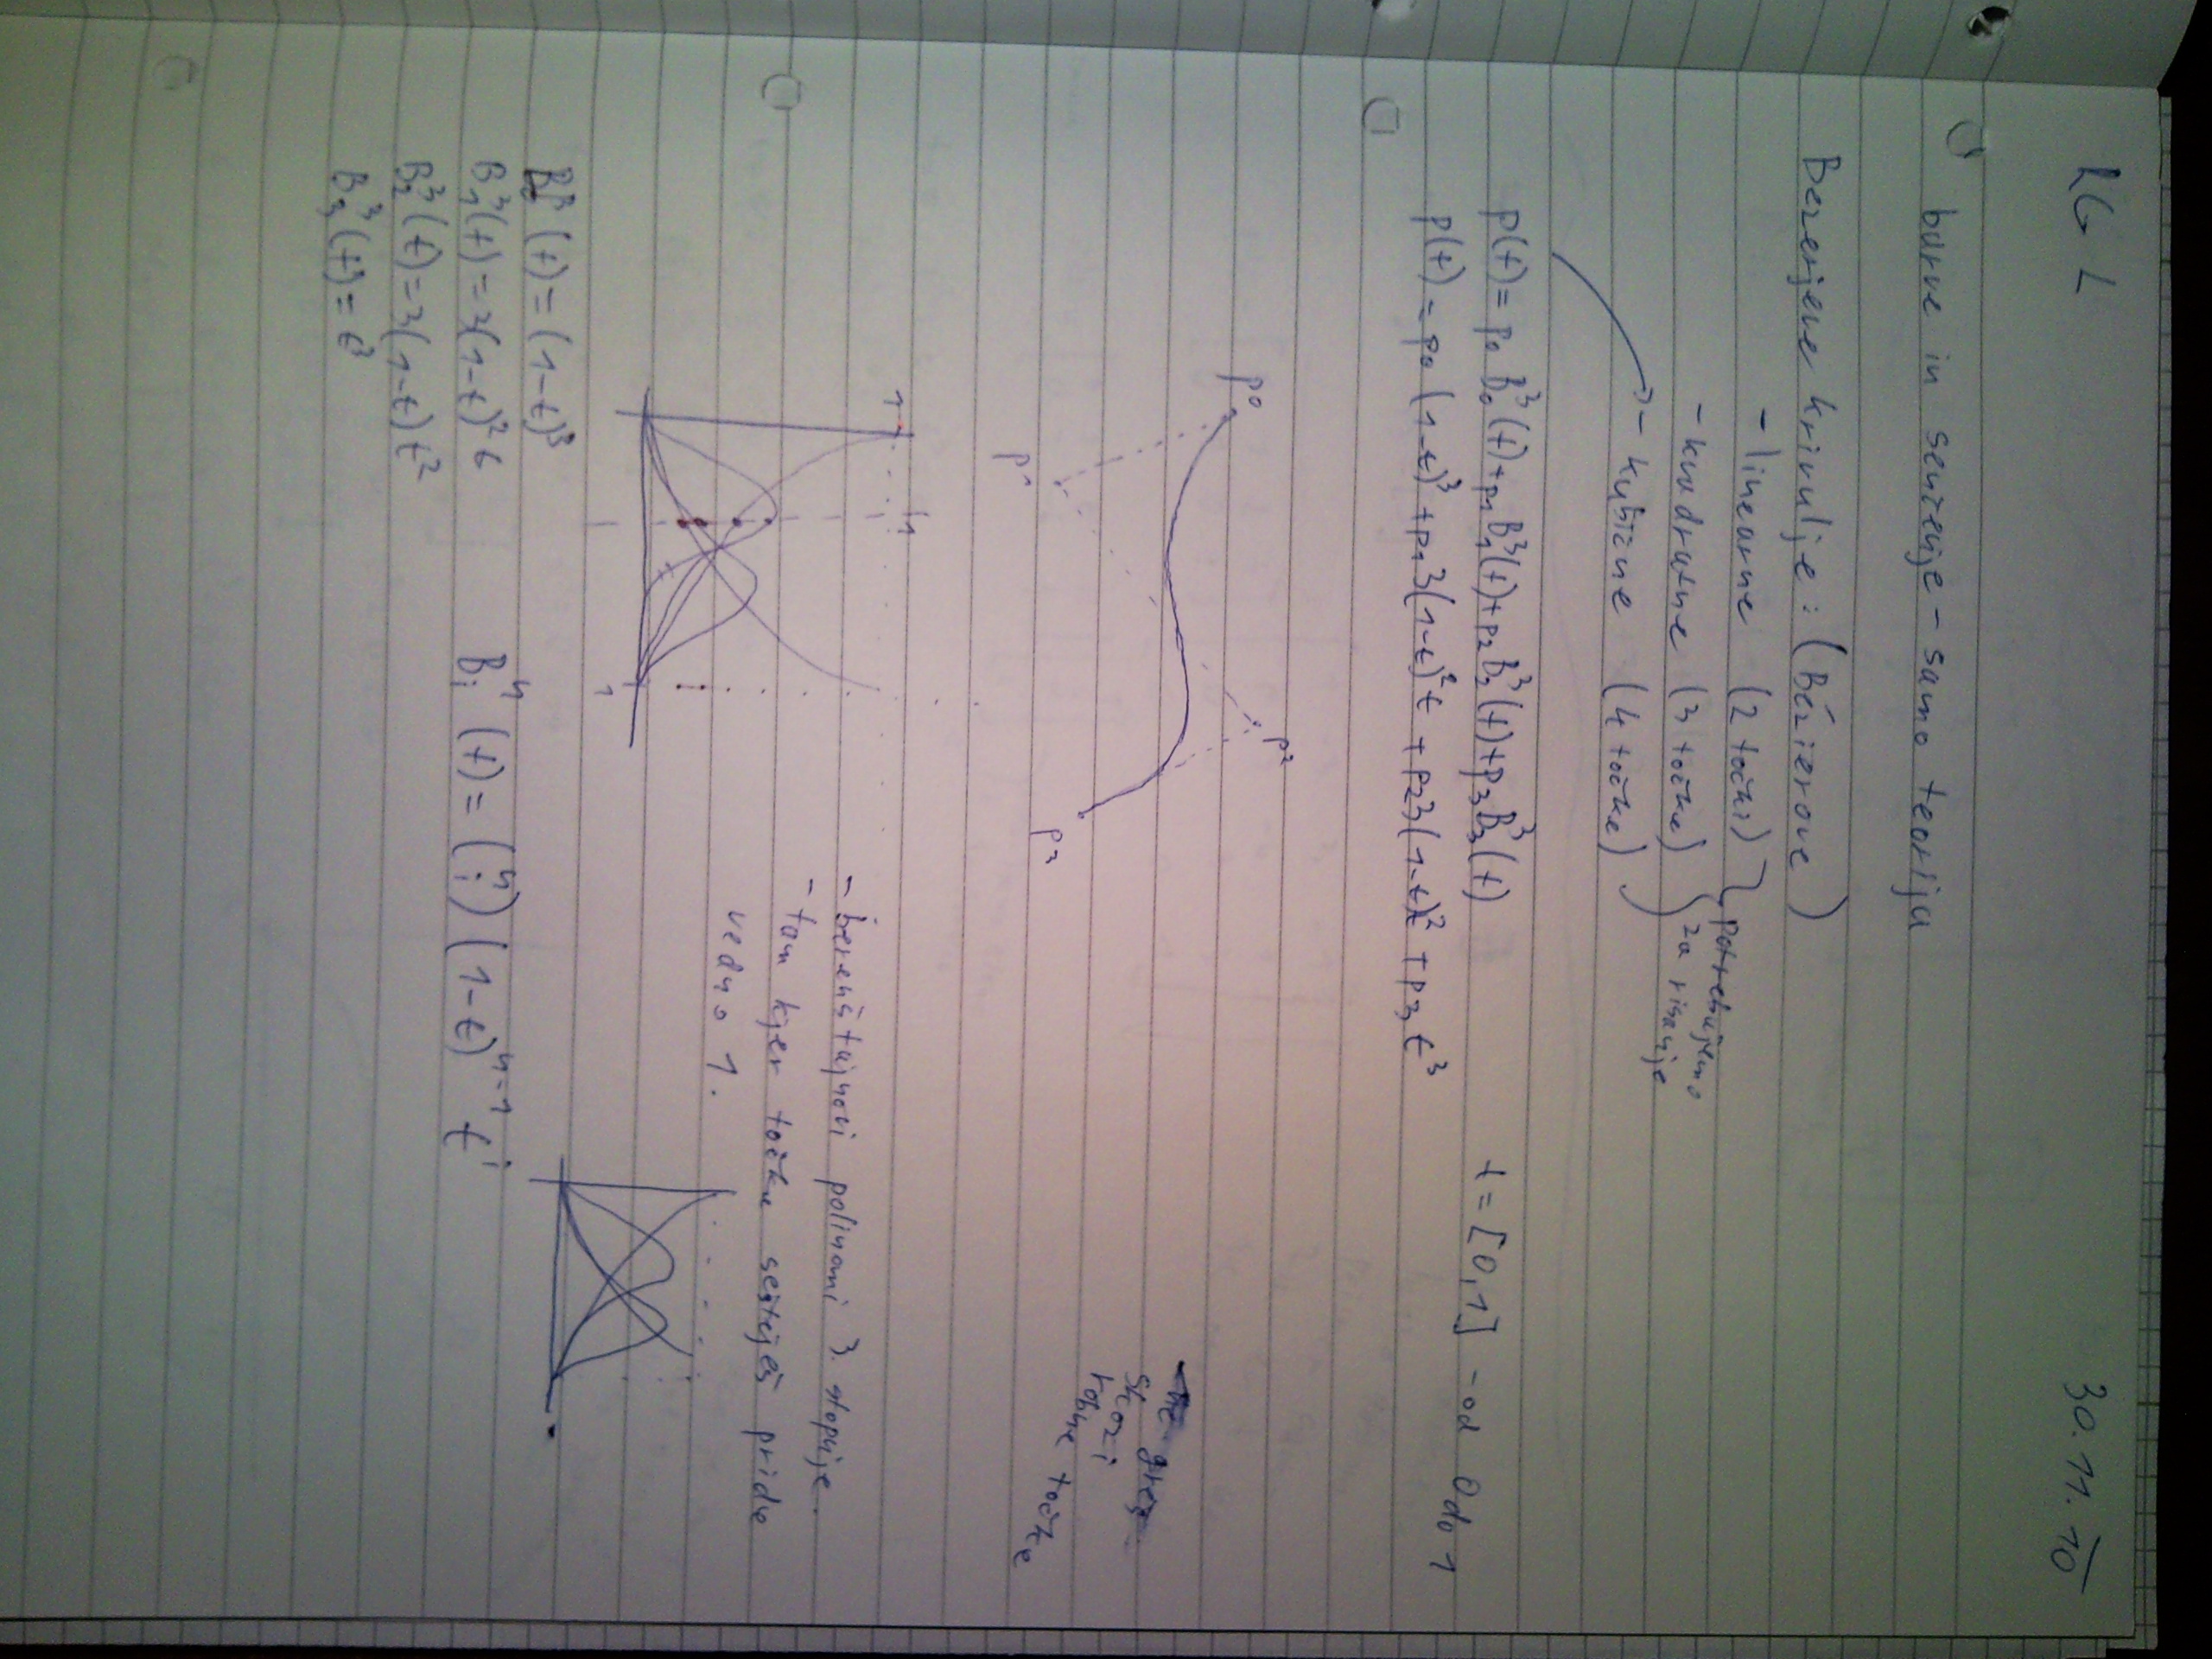 RG L 30.11.10
barve in senčenje - samo teorija
Bezerjeve krivulje: (Bézierove)
- linearne (2 točki)
- kvadratne (3 točke)
- kubične (4 točke)
potrebujemo
za risanje
p(t) = p0 B0³(t) + p1 B1³(t) + p2 B2³(t) + p3 B3³(t) t = [0,1] - od 0 do 1
p(t) = p0 (1-t)³ + p1 3(1-t)² t + p2 3(1-t)t² + p3 t³
p0
p1
p2
p3
skozi
robne točke
1
1
- berenštajnovi polinomi 3. stopnje.
- tam kjer točke sešteješ pride
vedno 1.
B0³(t) = (1-t)³
B1³(t) = 3(1-t)² t
B2³(t) = 3(1-t) t²
B3³(t) = t³
Biⁿ(t) = (n i) (1-t)ⁿ⁻¹ tⁱ